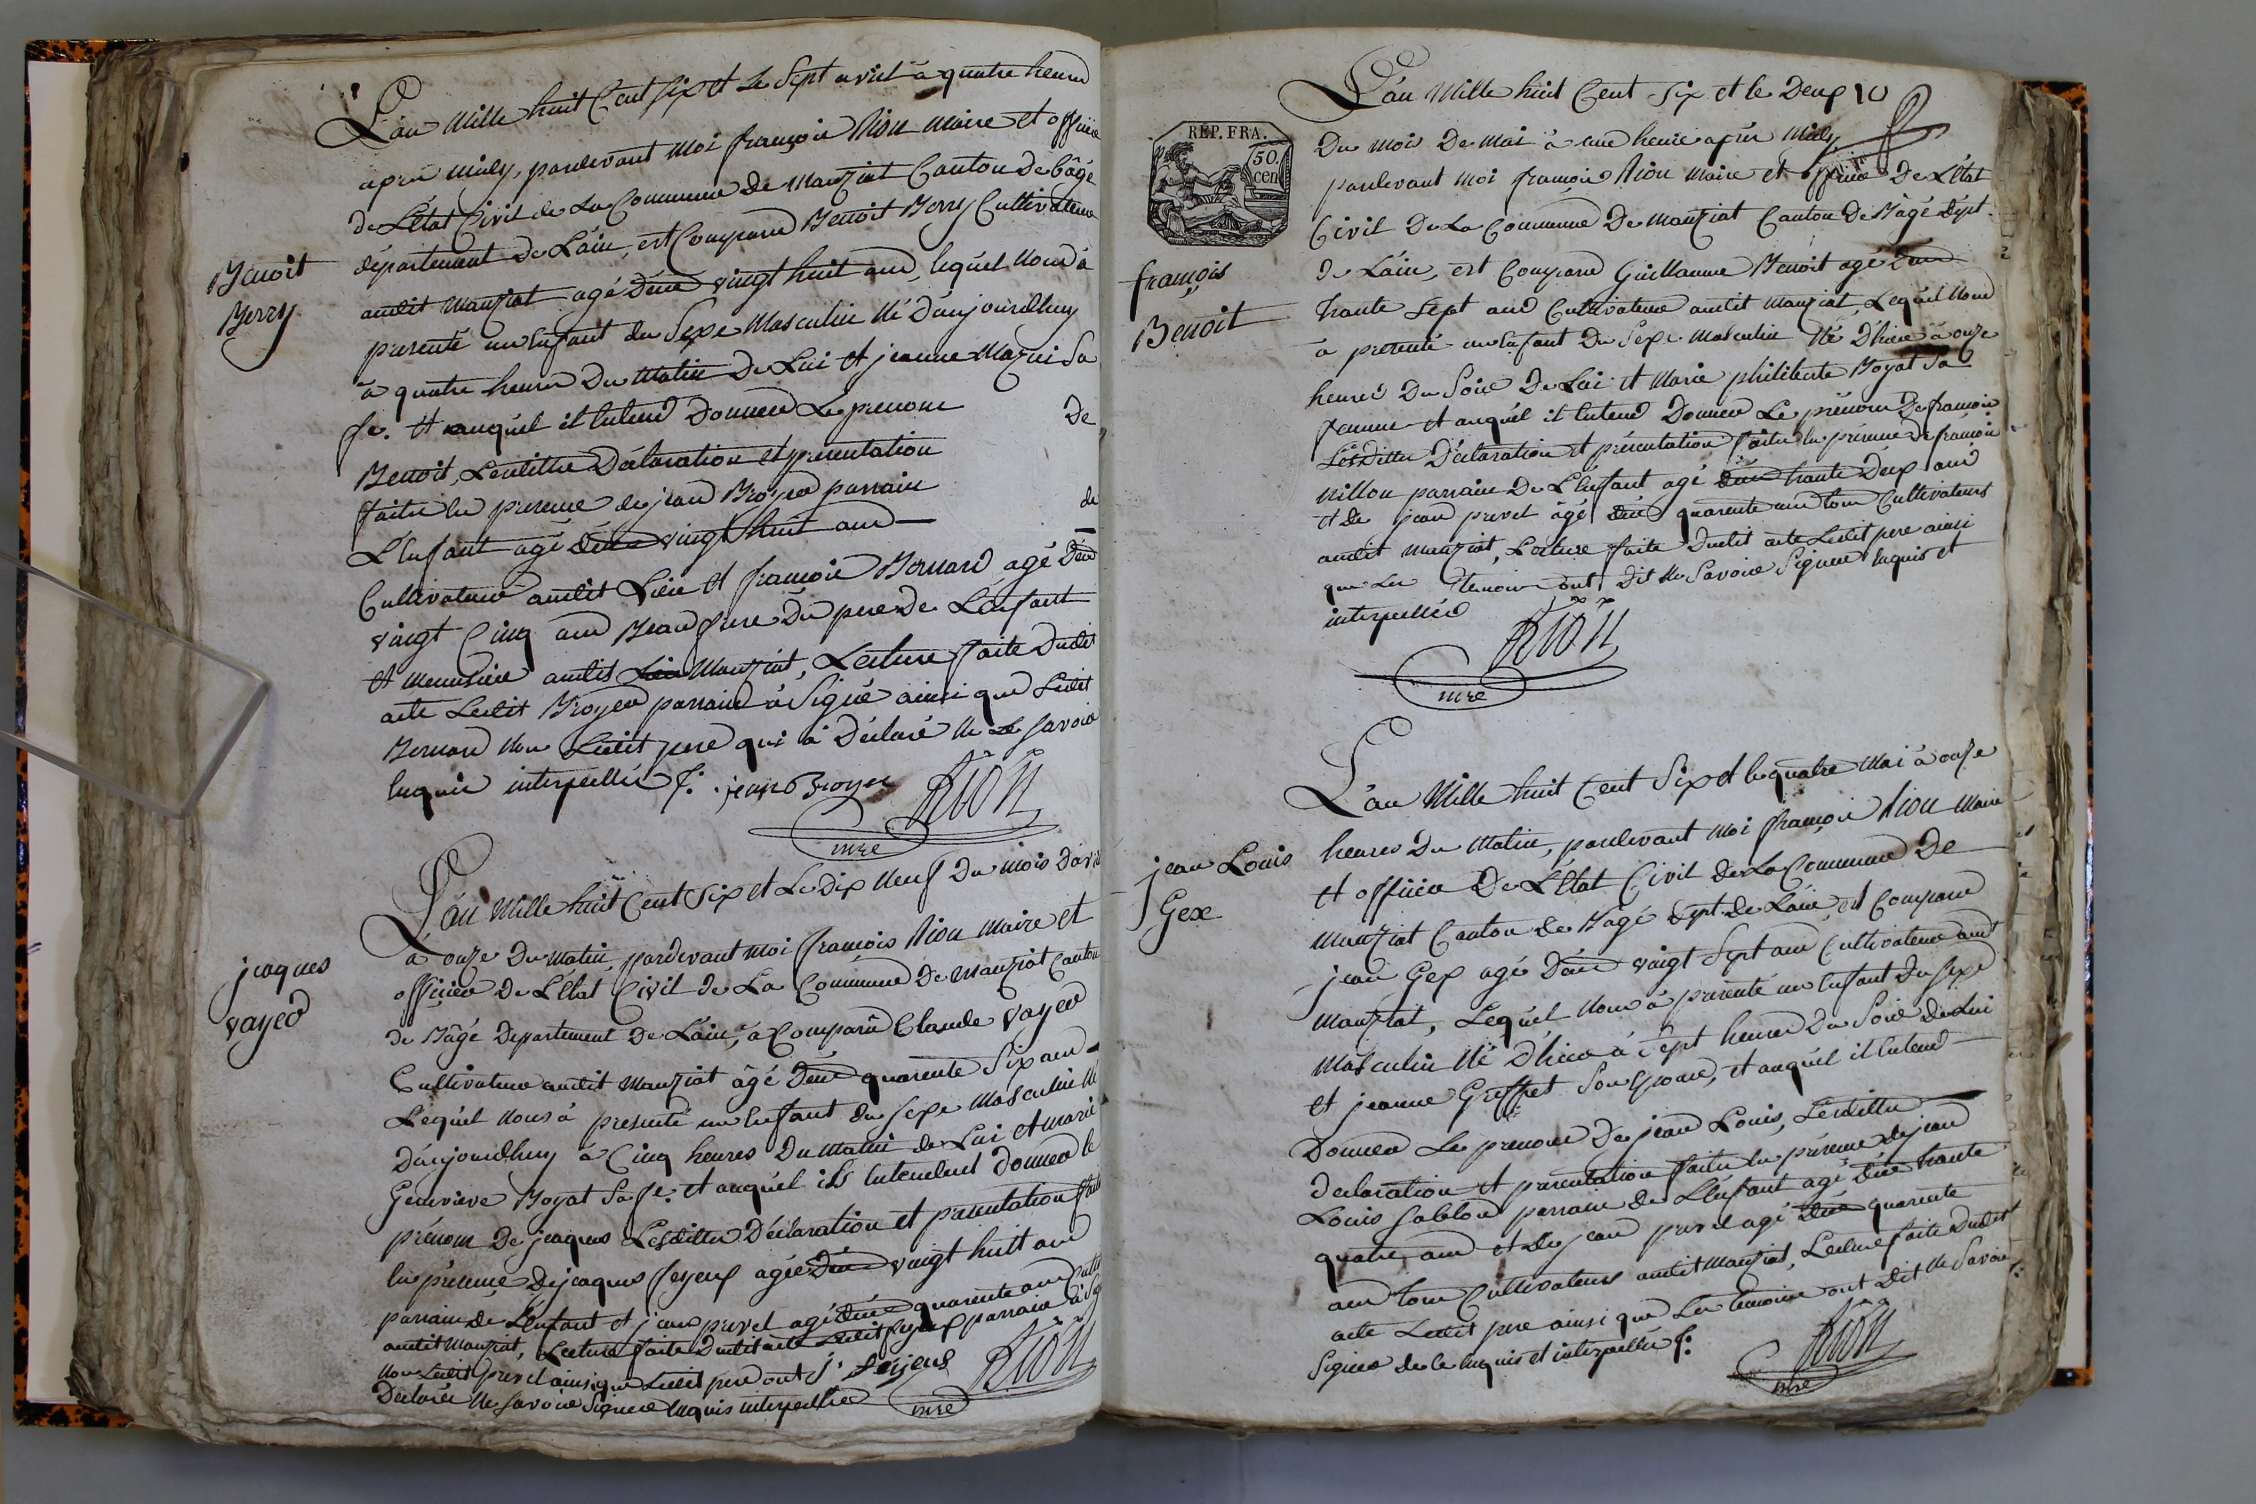 L'an mille huit Cent six et Le Sept avril à quatre heures
après midy, pardevant moi françois Rion maire et officier
de L'Etat Civil de La Commune de manziat Canton de bâgé
département de L'ain, est Comparu Benoit Berry Cultivateur
Benoit
Berry
audit manziat agé d'une vingt huit ans, lequel nous à
presenté un Enfant du Sexe masculin né d'aujourdhuy
à quatre heures du matin de Lui et jeanne Mazui Sa
fe. Et auquel il Entend Donner Le prenom De
Benoit, Lesdittes Déclaration et presentation
faites En presence de jean Broyer parrain de
L'Enfant agé d'une vingt huit ans
Cultivateur audit Lieu et françois Bernard agé d'une
vingt Cinq ans Beaufrere du pere de L'enfant
et menuisier audit Lieu Manziat, Lecture faite dudit
acte Ledit Broyer parrain à Signé ainsi que Ledit
Bernard non Ledit pere qui à Déclaré ne Le Savoir
Enquis interpellé f. jean Broyer Rion
mre
L'an mille huit Cent Six et Le Dix neuf Du mois Davril
à onze du matin, pardevant moi françois Rion maire et
jaques
vayer
officier de L'Etat Civil de La Commune De manziat Canton
de Bâgé Departement De L'ain, à Comparu Claude vayer
Cultivateur audit manziat âgé d'une quarente Six ans
Lequel nous à presenté un Enfant du Sexe masculin né
D'aujourdhuy à Cinq heures Du matin de Lui et marie
Genevieve Boyat Sa fe. et auquel ils Entendent donner le
prénom De jaques Lesdittes Déclaration et presentation faites
En présence De jaques feyeux agée d'une vingt huit ans
parrain de L'Enfant et jean privel agé d'une quarente ans Cultr
audit Manziat, Lecture faite dudit acte Ledit feyeux parrain à Sig
non Ledit privel ainsi que Ledit pere ont J. feyeux Rion
Déclaré ne Savoir Signer Enquis interpellé mre
L'an Mille huit Cent Six et le Deux 10
REP. FRA.
50.
cen
Du mois De mai à une heure après midy
pardevant moi françois Rion maire et officier De L'Etat
Civil De La Commune De manziat Canton De Bâgé dépt.
françois
Benoit
de L'ain, est Comparu Guillaume Benoit agé d'une
trante Sept ans Cultivateur audit manziat, Lequel nous
à presenté un Enfant Du Sexe masculin Né D'hier à onze
heures Du Soir De Lui et Marie philiberte Boyat Sa
femme et auquel il Entend Donner Le prénom De françois
Lesdittes Déclaration et présentation faites En présence de françois
nillon parrain De L'Enfant agé d'une trante Deux ans
et de jean privel agé d'une quarente ans tous Cultivateurs
audit manziat, Lecture faite dudit acte Ledit pere ainsi
que Les temoins ont Dit ne Savoir Signer Enquis et
interpellés
Rion
mre
L'an Mille huit Cent Six et le quatre Mai à onze
heures Du Matin, pardevant moi françois Rion Maire
jean Louis
Gex
et officier De L'Etat Civil de La Commune De
Manziat Canton de Bâgé dépt. de L'ain, est Comparu
jean Gex agé d'une vingt Sept ans Cultivateur audt
Manziat, Lequel nous à presenté un Enfant du Sexe
Masculin Né D'hier à Sept heures Du Soir de Lui
et jeanne Greffet Son Epouse, et auquel il Entend
Donner Le prenom De jean Louis, Lesdittes
declaration et presentation faites En présence de jean
Louis Sablon parrain de L'Enfant agé d'une trante
quatre ans et de jean privel agé d'une quarente
ans tous Cultivateurs audit Manziat, Lecture faite Dudit
acte Ledit pere ainsi que Les temoins ont Dit ne Savoir
Signer de ce Enquis et interpellés f.
Rion
mre